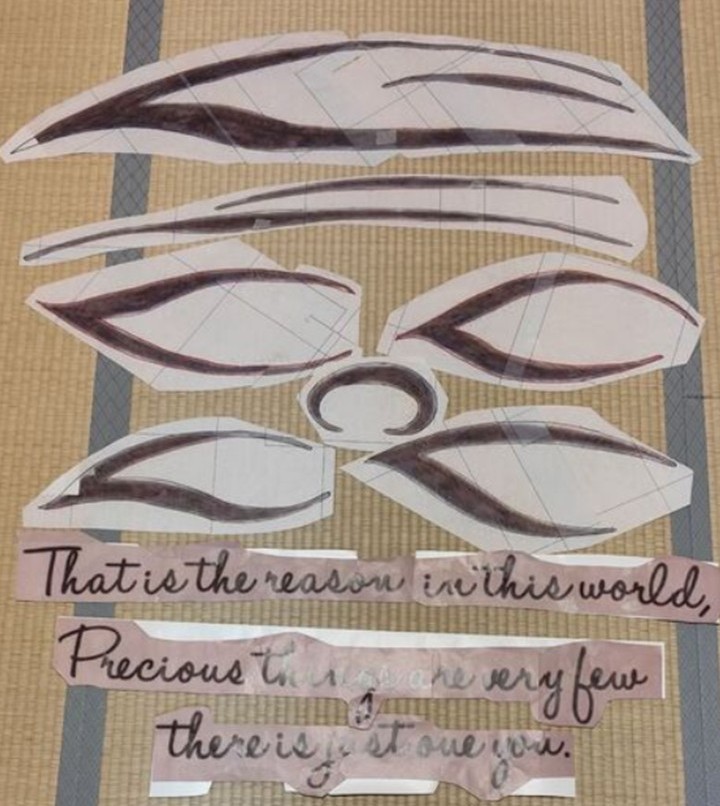 That is the reason in this world,
Precious things are very few
there is just one you.